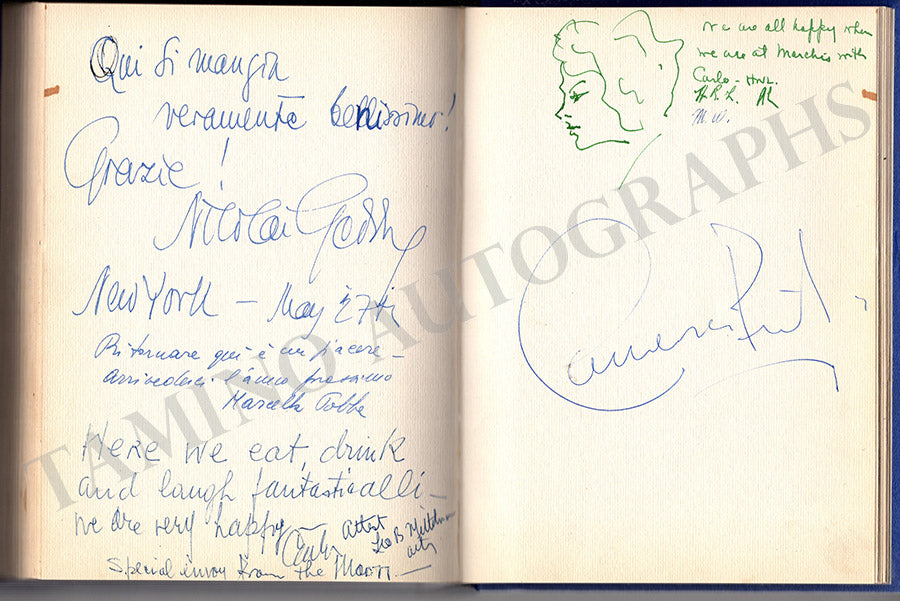 Qui si mangia
veramente bellissimo!
Grazie!
Nicolai Gedda
New York - May 27th
Ritornare qui è un piacere -
arrivederci l'anno prossimo
Marcella Pobbe
Here we eat, drink
and laugh fantasticalli -
we are very happy -
attest
Leo B
atty
Special envoy from the Moon -
we are all happy when
we are at Marchis with
Carlo -
H.R.L.
M. W.
TAMINO AUTOGRAPHS